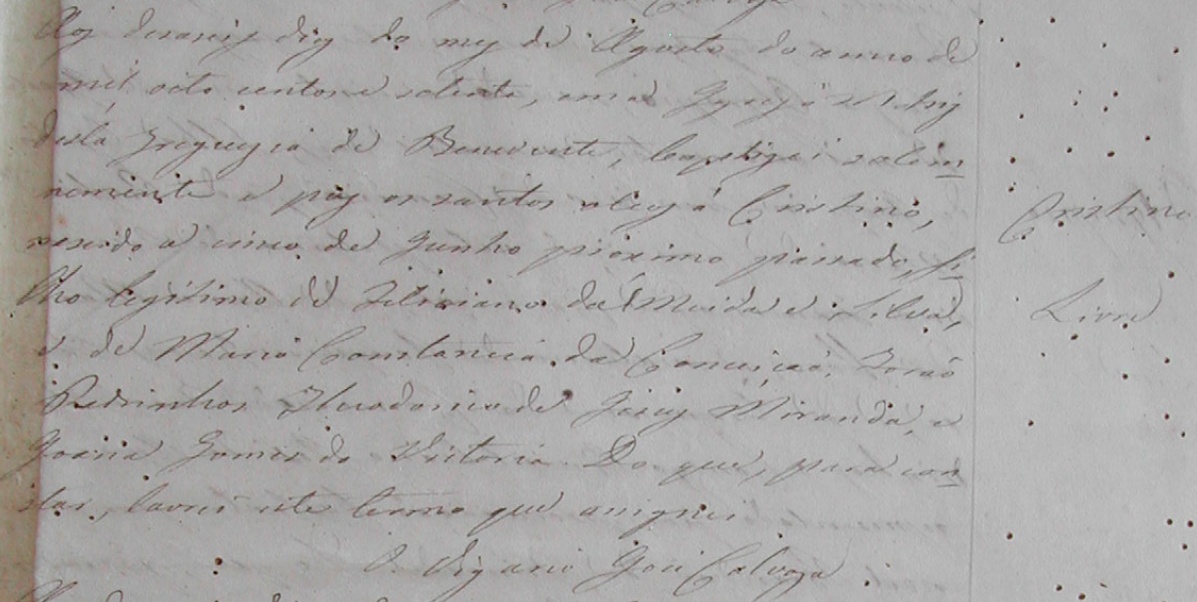 Aos deseseis dias do mez de Agosto do anno de
mil oito centos e setenta, em a Igreja Matriz
desta Freguezia de Benevente, baptizei solem
nemente e puz os santos oleos á Cristino,
Cristino
nascido a cinco de Junho proximo passado, fi
lho legitimo de Feliciano de Almeida e Silva,
Livre
e de Maria Constancia da Conceição. Forão
Padrinhos Theodorico de Jesus Miranda, e
Gomes da Victoria. Do que, para cons
tar, lavrei este termo que assignei.
O Vigario José Calvoza